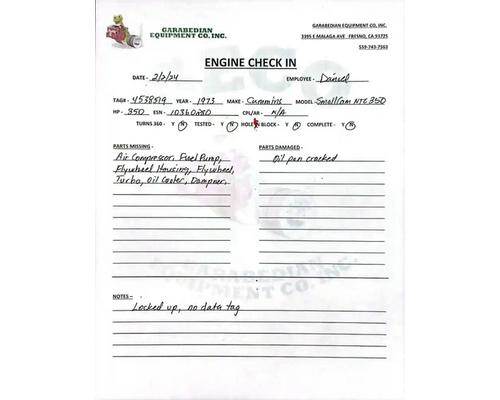 GARABEDIAN
EQUIPMENT CO. INC.
GARABEDIAN EQUIPMENT CO, INC.
3395 E MALAGA AVE FRESNO, CA 93725
559-743-7563
ENGINE CHECK IN
DATE - 2/2/24 EMPLOYEE - Daniel
TAG# - 4538519 YEAR - 1973 MAKE - Cummins MODEL - Small Cam NTC 350
HP - 350 ESN - 10360280 CPL/AR - N/A
TURNS 360 - Y N TESTED - Y N HOLE BLOCK - Y N COMPLETE - Y N
PARTS MISSING - PARTS DAMAGED -
Air Compressor, Fuel Pump, Oil pan cracked
Flywheel Housing, Flywheel,
Turbo, Oil Cooler, Dampner,
GARABEDIAN
EQUIPMENT CO. INC.
NOTES -
Locked up, no data tag